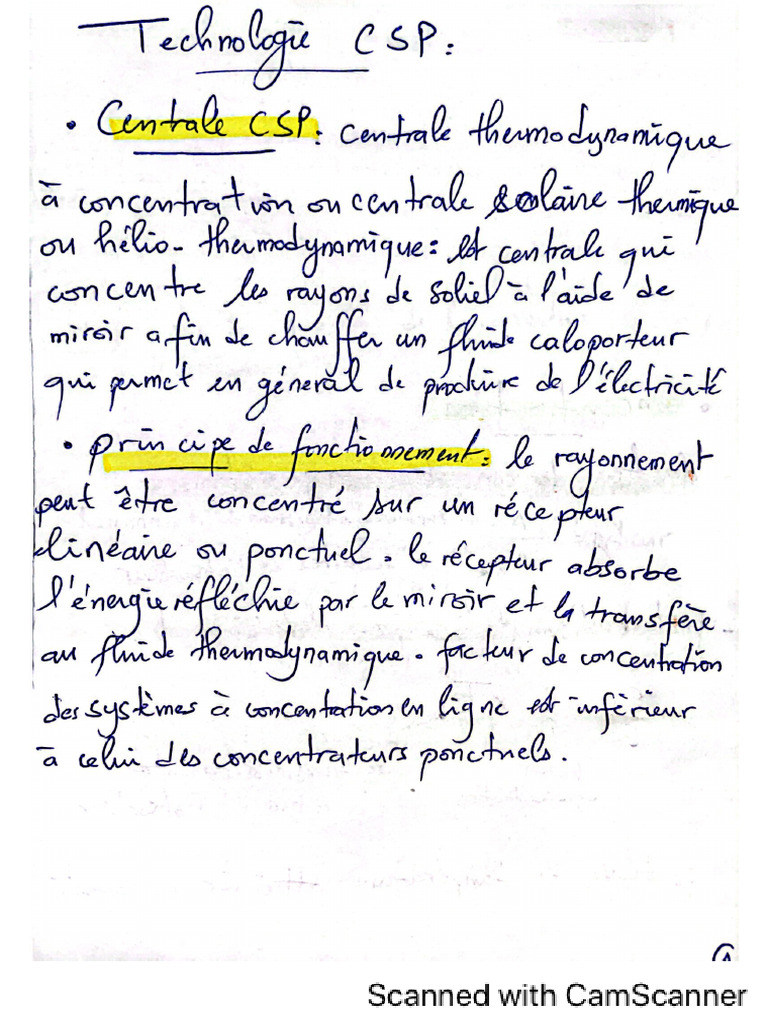 Technologie CSP:
• Centrale CSP: centrale thermodynamique
à concentration ou centrale solaire thermique
ou hélio-thermodynamique: est centrale qui
concentre les rayons de soliel à l'aide de
miroir afin de chauffer un fluide caloporteur
qui permet en géneral de produire de l'électricité
• principe de fonctionnement: le rayonnement
peut être concentré sur un récepteur
linéaire ou ponctuel. le récepteur absorbe
l'énergie réfléchie par le miroir et la transfère
au fluide thermodynamique. facteur de concentration
des systèmes à concentration en ligne est inférieur
à celui des concentrateurs ponctuels.
Scanned with CamScanner